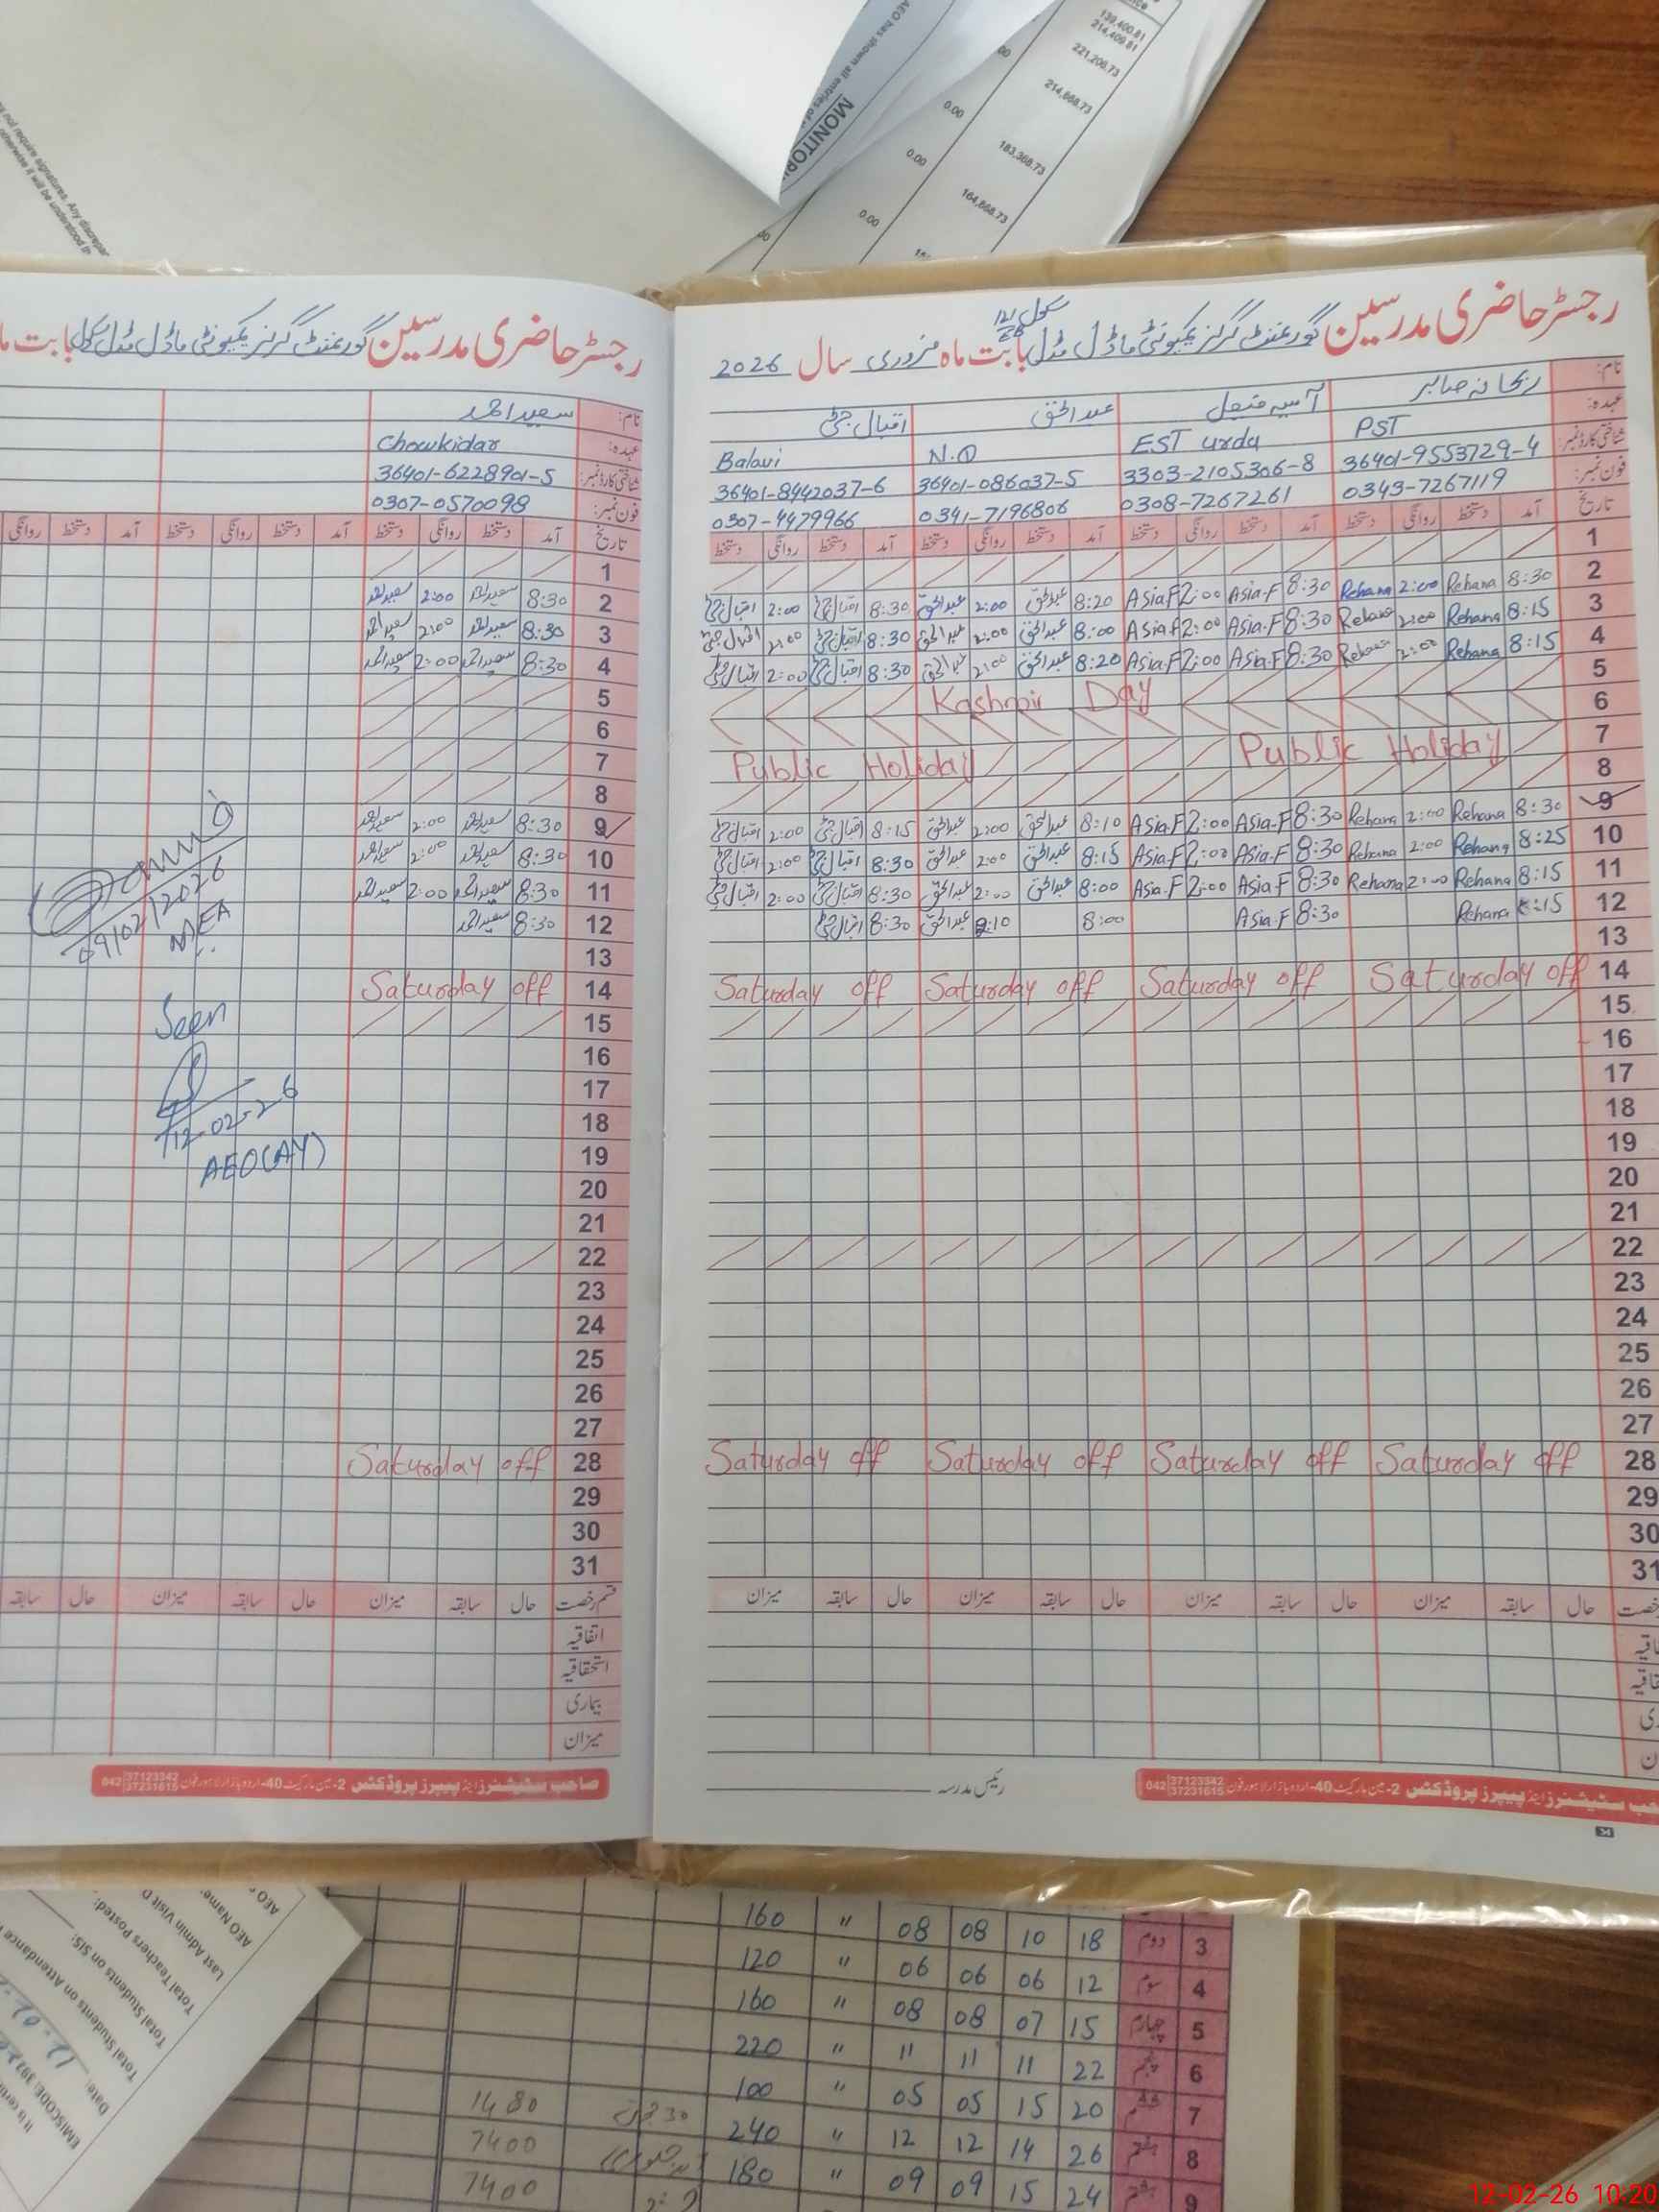 139,400.81
214,409.81
221,206.73
214,868.73
183,368.73
164,868.73
0.00
0.00
0.00
MONITOR
AEO has shown all entries of
not require signatures. Any discrepan
otherwise it will be understood th
رجسٹر حاضری مدرسین گورنمنٹ گرلز کمیونٹی ماڈل مڈل سکول بابت ماہ فروری سال 2026
نام: ریحانہ صابر آسیہ عبدالحق اقبال
عہدہ: PST EST urdu N.Q Balavi
شناختی کارڈ نمبر: 36401-9553729-4 3303-2105306-8 36401-086037-5 36401-8442037-6
فون نمبر: 0343-7267119 0308-7267261 0341-7196806 0307-4479966
تاریخ آمد دستخط روانگی دستخط آمد دستخط روانگی دستخط آمد دستخط روانگی دستخط آمد دستخط روانگی دستخط
1
2 8:30 Rehana 2:00 Rehana 8:30 Asia.F 2:00 Asia.F 8:20 عبدالحق 2:00 عبدالحق 8:30 اقبال 2:00 اقبال
3 8:15 Rehana 2:00 Rehana 8:30 Asia.F 2:00 Asia.F 8:00 عبدالحق 2:00 عبدالحق 8:30 اقبال 2:00 اقبال
4 8:15 Rehana 2:00 Rehana 8:30 Asia.F 2:00 Asia.F 8:20 عبدالحق 2:00 عبدالحق 8:30 اقبال 2:00 اقبال
5 Kashmir Day
6
7 Public Holiday Public Holiday
8
9 8:30 Rehana 2:00 Rehana 8:30 Asia.F 2:00 Asia.F 8:10 عبدالحق 2:00 عبدالحق 8:15 اقبال 2:00 اقبال
10 8:25 Rehana 2:00 Rehana 8:30 Asia.F 2:00 Asia.F 8:15 عبدالحق 2:00 عبدالحق 8:30 اقبال 2:00 اقبال
11 8:15 Rehana 2:00 Rehana 8:30 Asia.F 2:00 Asia.F 8:00 عبدالحق 2:00 عبدالحق 8:30 اقبال 2:00 اقبال
12 8:15 Rehana 8:30 Asia.F 8:00 عبدالحق 8:30 اقبال
13
14 Saturday off Saturday off Saturday off Saturday off
15
16
17
18
19
20
21
22
23
24
25
26
27
28 Saturday off Saturday off Saturday off Saturday off
29
30
31
رخصت حال سابقہ میزان حال سابقہ میزان حال سابقہ میزان حال سابقہ میزان
رئیس مدرسہ
سٹیشنرز اینڈ پیپرز پروڈکٹس 2-مین مارکیٹ 40-اردو بازار لاہور فون 042 37123342 37231615
رجسٹر حاضری مدرسین گورنمنٹ گرلز کمیونٹی ماڈل مڈل سکول بابت
نام: سعید احمد
عہدہ: Chowkidar
شناختی کارڈ نمبر: 36401-6228901-5
فون نمبر: 0307-0570098
تاریخ آمد دستخط روانگی دستخط آمد دستخط روانگی دستخط آمد دستخط روانگی
1
2 8:30 سعید احمد 2:00 سعید احمد
3 8:30 سعید احمد 2:00 سعید احمد
4 8:30 سعید احمد 2:00 سعید احمد
5
6
7
8
9 8:30 سعید احمد 2:00 سعید احمد
10 8:30 سعید احمد 2:00 سعید احمد
11 8:30 سعید احمد 2:00 سعید احمد
12 8:30 سعید احمد
13
14 Saturday off
15
16
17
18
19
20
21
22
23
24
25
26
27
28 Saturday off
29
30
31
09/02/2026
MEA
Seen
12-02-26
AEO(AY)
قسم رخصت حال سابقہ میزان حال سابقہ میزان حال سابقہ
اتفاقیہ
استحقاقیہ
بیماری
میزان
صاحب سٹیشنرز اینڈ پیپرز پروڈکٹس 2-مین مارکیٹ 40-اردو بازار لاہور فون 042 37123342 37231615
3 دوم 18 10 08 08 " 160
4 سوم 12 06 06 06 " 120
5 چہارم 15 07 08 08 " 160
6 پنجم 22 11 11 11 " 220
7 ششم 20 15 05 05 " 100 1480
8 ہفتم 26 14 12 12 " 240 7400
9 ہشتم 24 15 09 09 " 180 7400
AEO Name
Last Admin Visit D
Total Teachers Posted:
Total Students on SIS:
Total Students on Attendance
Date:
EMISCODE:
12-02-26 10:20